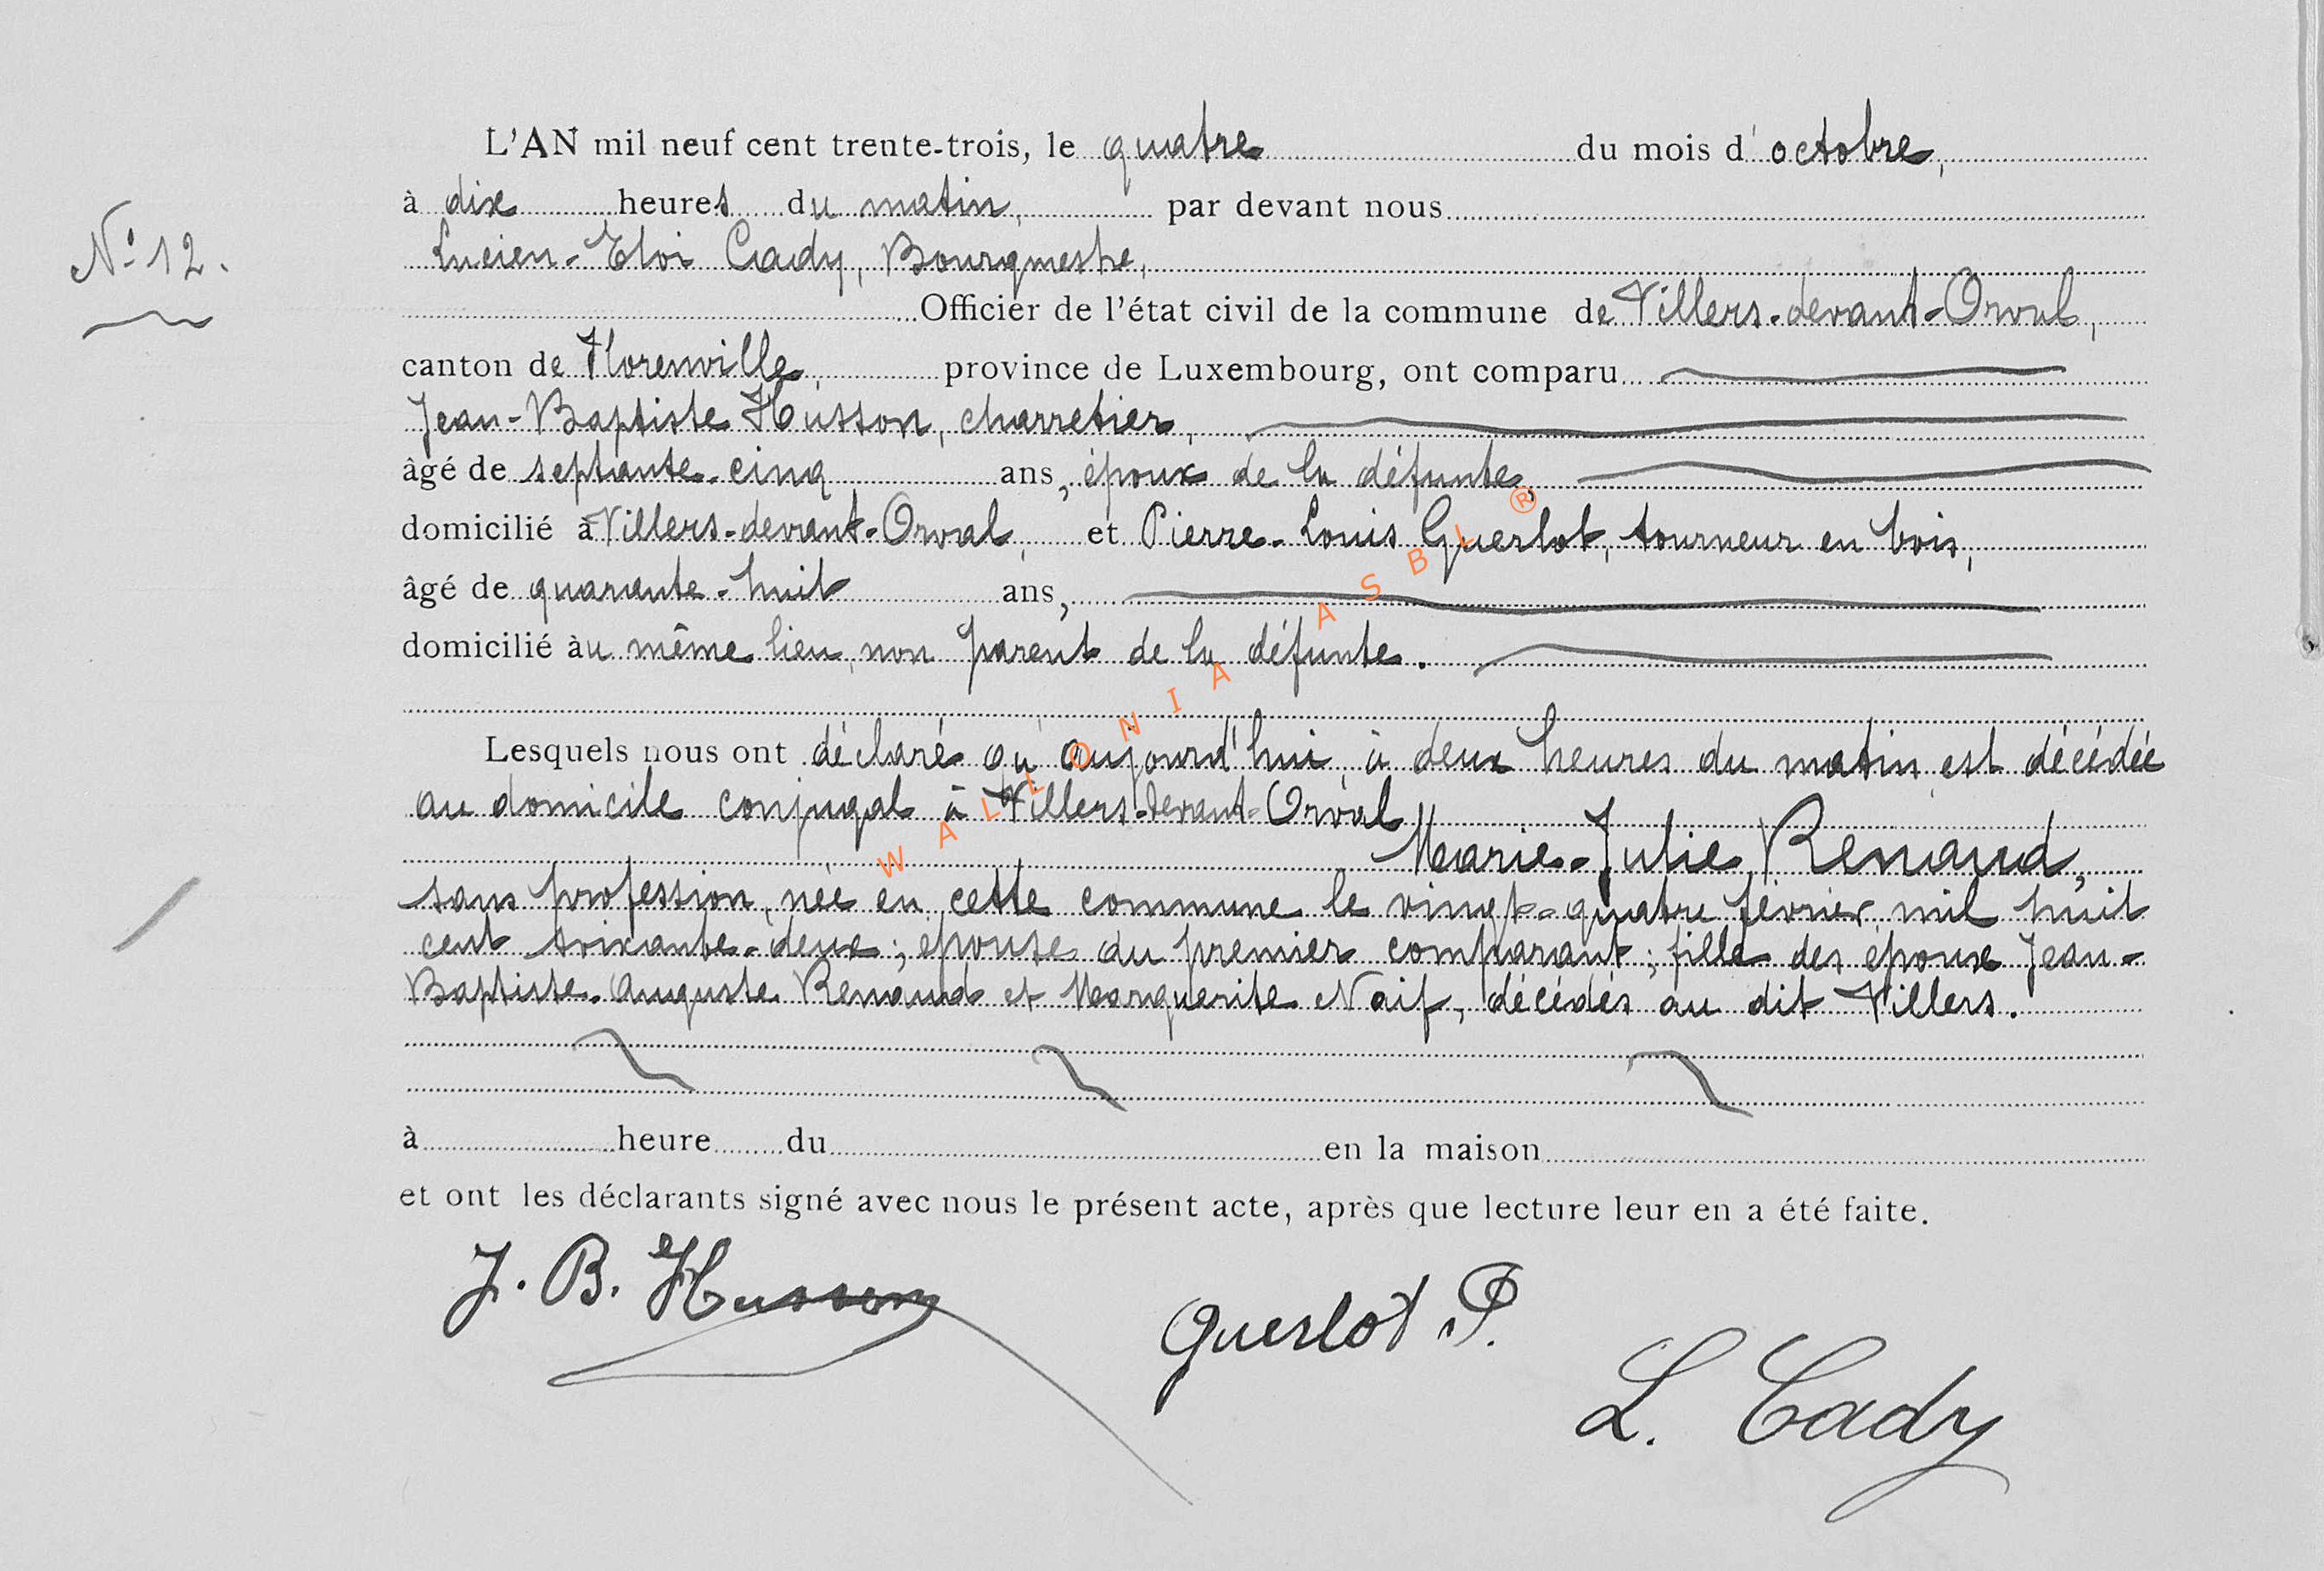 L'AN mil neuf cent trente-trois, le quatre du mois d'octobre,
à dix heures du matin, par devant nous
N° 12.
Lucien-Eloi Cady, Bourgmestre,
Officier de l'état civil de la commune de Villers-devant-Orval,
canton de Florenville, province de Luxembourg, ont comparu
Jean-Baptiste Husson, charretier,
âgé de septante-cinq ans, époux de la défunte,
domicilié à Villers-devant-Orval, et Pierre-Louis Guerlot, tourneur en bois,
âgé de quarante-huit ans,
domicilié au même lieu, non parent de la défunte.
Lesquels nous ont déclaré qu'aujourd'hui, à deux heures du matin, est décédée
au domicile conjugal à Villers-devant-Orval
Marie-Julie Renaud,
sans profession, née en cette commune le vingt-quatre février mil huit
cent soixante-deux; épouse du premier comparant; fille des époux Jean-
Baptiste-Auguste Renaud et Marguerite Naif, décédés au dit Villers.
à heure du en la maison
et ont les déclarants signé avec nous le présent acte, après que lecture leur en a été faite.
J. B. Husson
Guerlot P.
L. Cady
WALLONIA ASBL ®